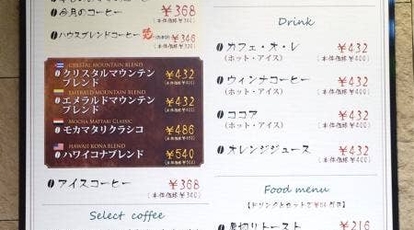 今月のコーヒー ¥368
(本体価格¥340)
ハウスブレンドコーヒー ¥346
CRYSTAL MOUNTAIN BLEND
クリスタルマウンテン ¥432
ブレンド (本体価格¥400)
EMERALD MOUNTAIN BLEND
エメラルドマウンテン ¥432
ブレンド (本体価格¥400)
MOCHA MATTARI CLASSIC
モカマタリクラシコ ¥486
(本体価格¥450)
HAWAII KONA BLEND
ハワイコナブレンド ¥540
(本体価格¥500)
アイスコーヒー ¥368
(本体価格¥340)
Select coffee
Drink
カフェ・オ・レ ¥432
(ホット・アイス) (本体価格¥400)
ウィンナコーヒー ¥432
(ホット・アイス) (本体価格¥400)
ココア ¥432
(ホット・アイス) (本体価格¥400)
オレンジジュース ¥432
(本体価格¥400)
Food menu
厚切りトースト ¥216